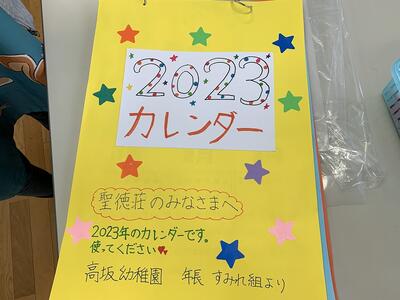 2023
カレンダー
聖徳荘のみなさまへ
2023年のカレンダーです。
使ってください
高坂幼稚園 年長 すみれ組より